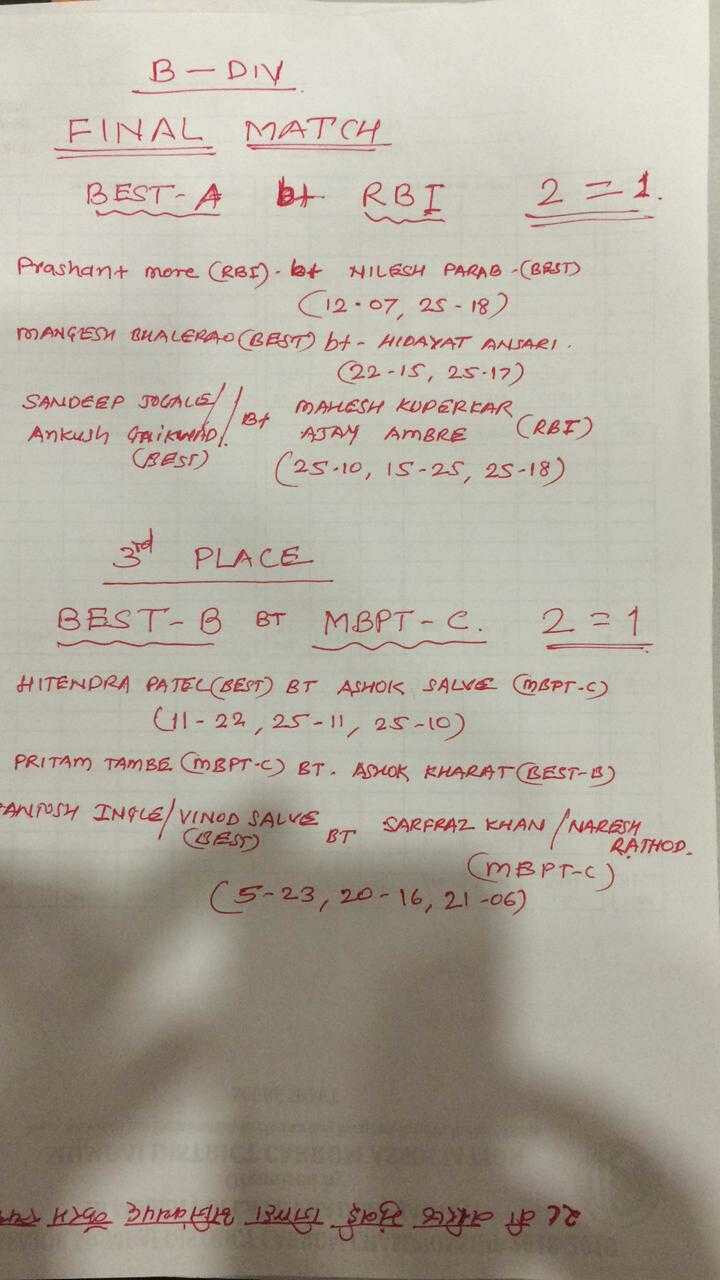 B - DIV
FINAL MATCH
BEST-A bt RBI 2 = 1.
Prashant more (RBI) - bt NILESH PARAB - (BEST)
(12-07, 25-18)
MANGESH BHALERAO (BEST) bt - HIDAYAT ANSARI.
(22-15, 25-17)
SANDEEP JOGALE/ / Bt MAHESH KUPERKAR
Ankush GAIKWAD/. AJAY AMBRE (RBI)
(BEST) (25-10, 15-25, 25-18)
3rd PLACE
BEST-B BT MBPT-C. 2 = 1
HITENDRA PATEL (BEST) BT ASHOK SALVE (MBPT-C)
(11-22, 25-11, 25-10)
PRITAM TAMBE (MBPT-C) BT. ASHOK KHARAT (BEST-B)
ANTOSH INGLE/VINOD SALVE BT SARFRAZ KHAN / NARESH RATHOD.
(BEST) (MBPT-C)
(5-23, 20-16, 21-06)
२८ वी मुंबई जिल्हा